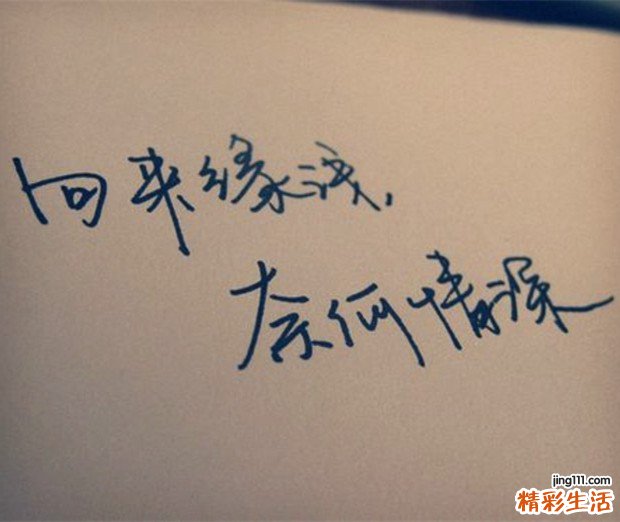 向来缘浅,
奈何情深
jing111.com
精彩生活